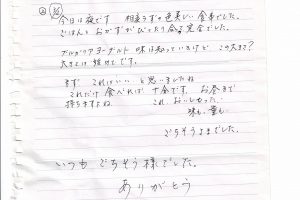 今日は夜です 相変らずの色美しい食事でした。
ごはんと おかずが ぴったり合い 完食でした。
ブルガリアヨーグルト 味は知っているけど この大きさ?
大きさは 始めてです。
まず これはいい と思いましたね
これだけ食べれば 十分です お昼まで
持ちますよね これ、おいしかった。
味も、量も、
ごちそうさまでした。
いつも ごちそう様でした。
ありがとう